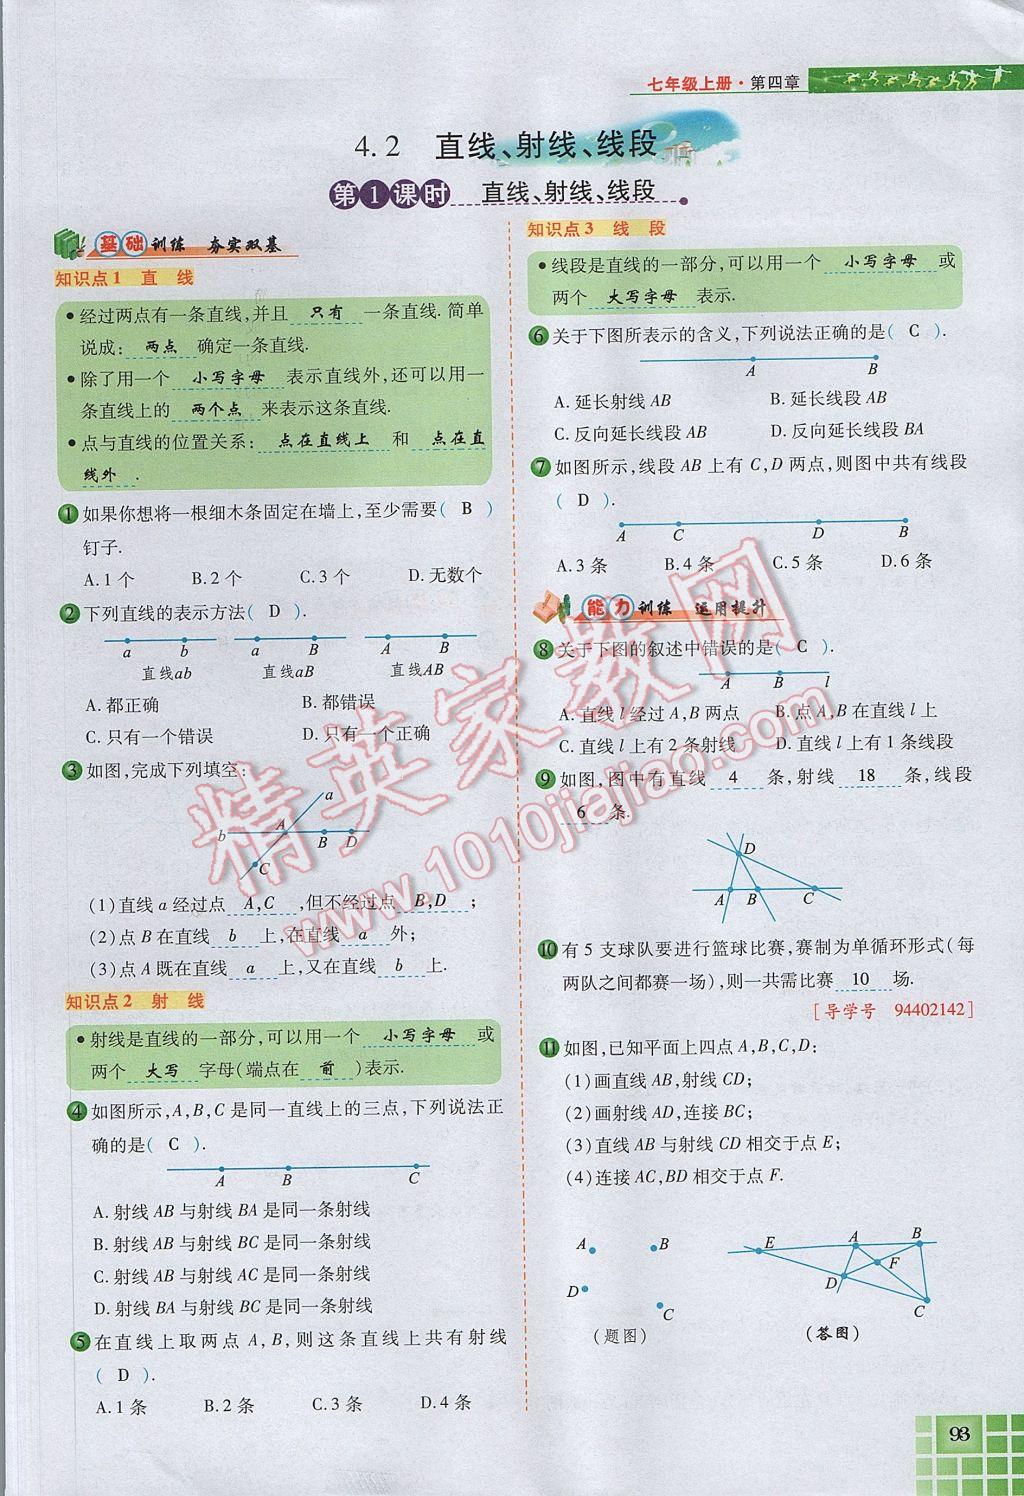 七年级上册·第四章
4.2 直线、射线、线段
第1课时 直线、射线、线段
基础训练 夯实双基
知识点1 直 线
•经过两点有一条直线,并且 只有 一条直线.简单
说成: 两点 确定一条直线.
•除了用一个 小写字母 表示直线外,还可以用一
条直线上的 两个点 来表示这条直线.
•点与直线的位置关系: 点在直线上 和 点在直
线外 .
1 如果你想将一根细木条固定在墙上,至少需要( B )
钉子.
A.1个 B.2个 C.3个 D.无数个
2 下列直线的表示方法( D ).
a b a B A B
直线ab 直线aB 直线AB
A.都正确 B.都错误
C.只有一个错误 D.只有一个正确
3 如图,完成下列填空:
a
b A B D
C
(1)直线a经过点 A,C ,但不经过点 B,D ;
(2)点B在直线 b 上,在直线 a 外;
(3)点A既在直线 a 上,又在直线 b 上.
知识点2 射 线
•射线是直线的一部分,可以用一个 小写字母 或
两个 大写 字母(端点在 前 )表示.
4 如图所示,A,B,C是同一直线上的三点,下列说法正
确的是( C ).
A B C
A.射线AB与射线BA是同一条射线
B.射线AB与射线BC是同一条射线
C.射线AB与射线AC是同一条射线
D.射线BA与射线BC是同一条射线
5 在直线上取两点A,B,则这条直线上共有射线
( D ).
A.1条 B.2条 C.3条 D.4条
知识点3 线 段
•线段是直线的一部分,可以用一个 小写字母 或
两个 大写字母 表示.
6 关于下图所表示的含义,下列说法正确的是( C ).
A B
A.延长射线AB B.延长线段AB
C.反向延长线段AB D.反向延长线段BA
7 如图所示,线段AB上有C,D两点,则图中共有线段
( D ).
A C D B
A.3条 B.4条 C.5条 D.6条
能力训练 运用提升
8 关于下图的叙述中错误的是( C ).
A B l
A.直线l经过A,B两点 B.点A,B在直线l上
C.直线l上有2条射线 D.直线l上有1条线段
9 如图,图中有直线 4 条,射线 18 条,线段
6 条.
D
A B C
10 有5支球队要进行篮球比赛,赛制为单循环形式(每
两队之间都赛一场),则一共需比赛 10 场.
[导学号 94402142]
11 如图,已知平面上四点A,B,C,D:
(1)画直线AB,射线CD;
(2)画射线AD,连接BC;
(3)直线AB与射线CD相交于点E;
(4)连接AC,BD相交于点F.
A B
D C
(题图)
E A B
D F
C
(答图)
精英家教网
www.1010jiajiao.com
93